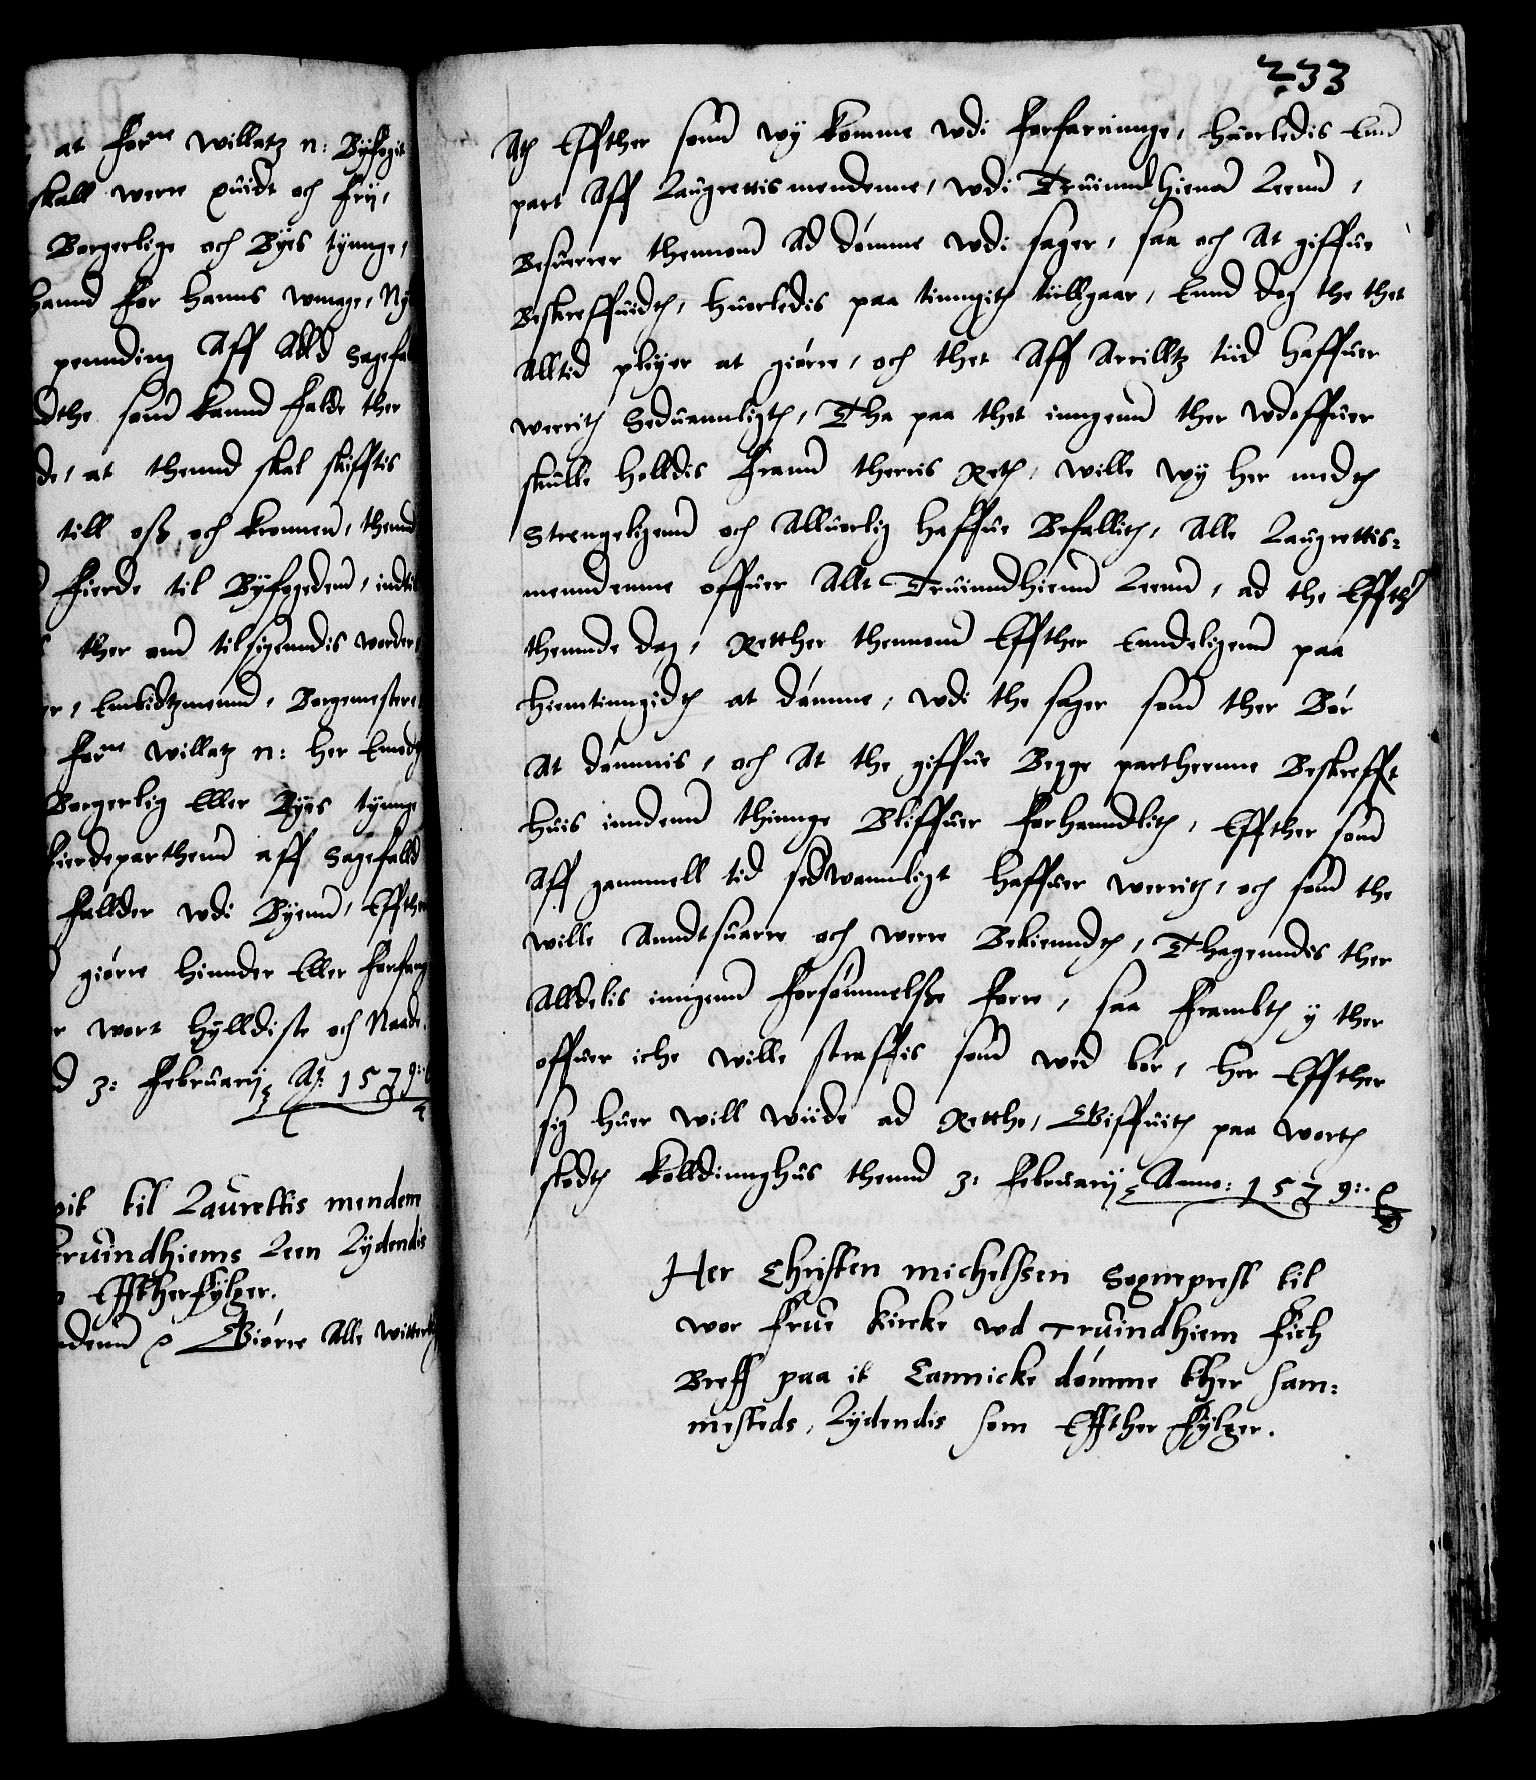 at for:ne willatz n: Byfogit
skall were quidt och fry,
Borgerlige och Byes tynnge,
hannd for hanns wmage, Ny
pennding Aff Alld Sagefa
dthe som kannd falde ther
de, at thennd skal skifftis
till oss och kronnen, thennd
fierde til Byfogeden, indtil
ther om tilsigenndis worder
er, Embidtzmennd, Borgemestere
for:ne willatz n: her Emodh
Borgerlig Eller Byes tynnge
fierdeparthenn aff Sagefalld
fallder wdi Byenn, Effther
giørre hinnder Eller forfang
r wort hylldiste och Naade.
d 3: Februarij Aº: 1579:
it til Laurettis mendene
Truindhiems Leen Lydendis
Effther fylger.
denn Giøre Alle witterligt
233
Ath Effther som wy komme wdi forfaringe, huorledis Enn
part Aff Laugrettis mendenne, wdi Truinndhienns Leenn,
Besuerrer thennom Ad dømme wdi sager, saa och At giffue
Beskreffuidth, huorledis paa tinngith tillgaar, Ennd dog the thet
Alltid pleyer at giørre, och thet Aff Arrilltz tiid haffuer
werrith Seduannligth, Tha paa thet inngenn ther wdoffuer
skulle holldis frann therris Reth, wille wy her medh
Strengeligenn och Alluorlig haffue Befallith, Alle Laugrettis=
menndenne offuer Allt Truinndhienn Leenn, ad the Effther
thennde dag, Retther thennom Effther Enndeligenn paa
hiemtinngidh at dømme, wdi the sager som ther Bør
At dømmis, och At the giffue Begge partherne Beskrefft
huis inndenn thinnge Bliffuer forhanndlith, Effther som
Aff gammell tid sedwannligt haffuer werrith, och som the
wille Anndtsuarre och were Bekienndh, Thagenndis ther
Alldelis inngenn forsømmelsse forre, saa frambth y ther
offuer iche wille straffis som wed bør, her Effther
sig huer will wiide ad Rettho, Giffuith paa worth
slodth Kolldinnghus thennd 3: Februarij Anno: 1579:
Her Christen Michelssen Sognepresst til
wor frue kircke wd Truindhiem fich
Breff paa it Cannicke dømme ther sam=
mesteds, Lydendis som Effther fylger.